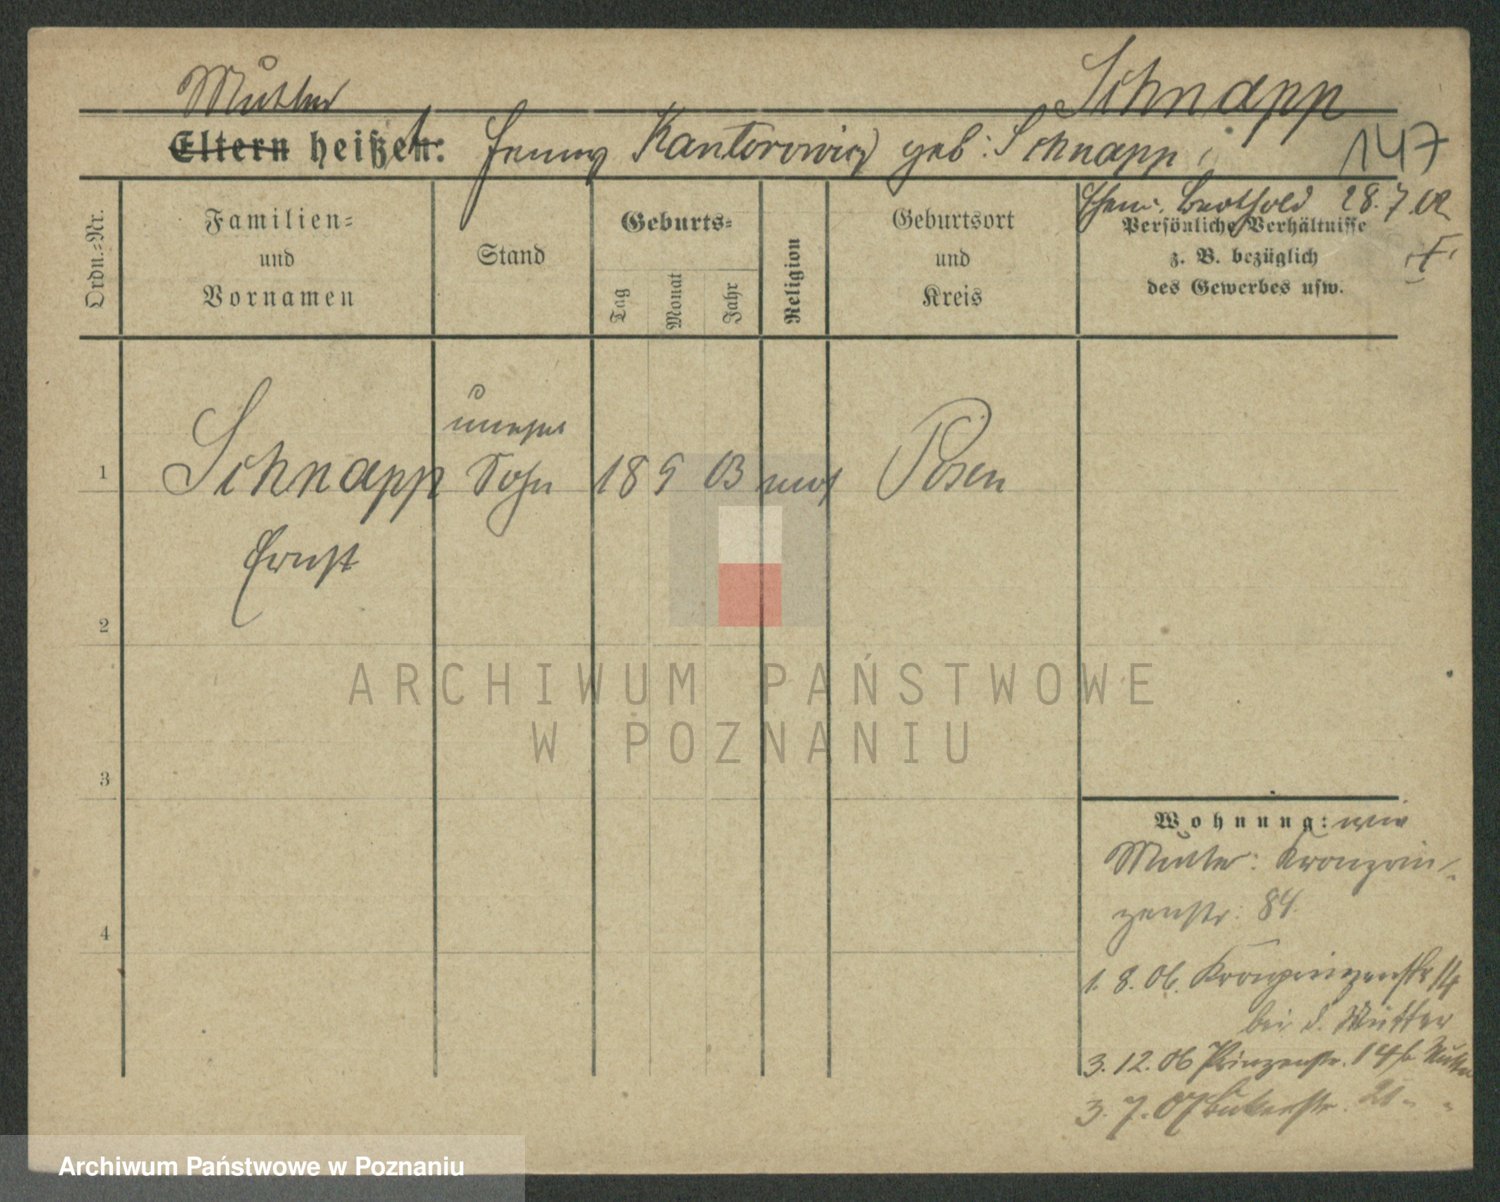 Mutter
Schnapp
Eltern heißen: Jenny Kantorowicz geb. Schnapp
147
Ehem. Berthold 28.7.02
Ordn.-Nr.
Familien-
und
Vornamen
Stand
Geburts-
Tag
Monat
Jahr
Religion
Geburtsort
und
Kreis
Persönliche Verhältnisse
z. B. bezüglich
des Gewerbes usw.
1
Schnapp
unehel
Sohn
18 9 03
mos
Posen
Ernst
2
3
4
ARCHIWUM PAŃSTWOWE
W POZNANIU
Wohnung: wie
Mutter: Kronprin-
zenstr. 84.
1. 8. 06. Kronprinzenstr 14
bei d. Mutter
3. 12. 06 Prinzenstr. 14 b Mutter
3. 7. 07
Archiwum Państwowe w Poznaniu